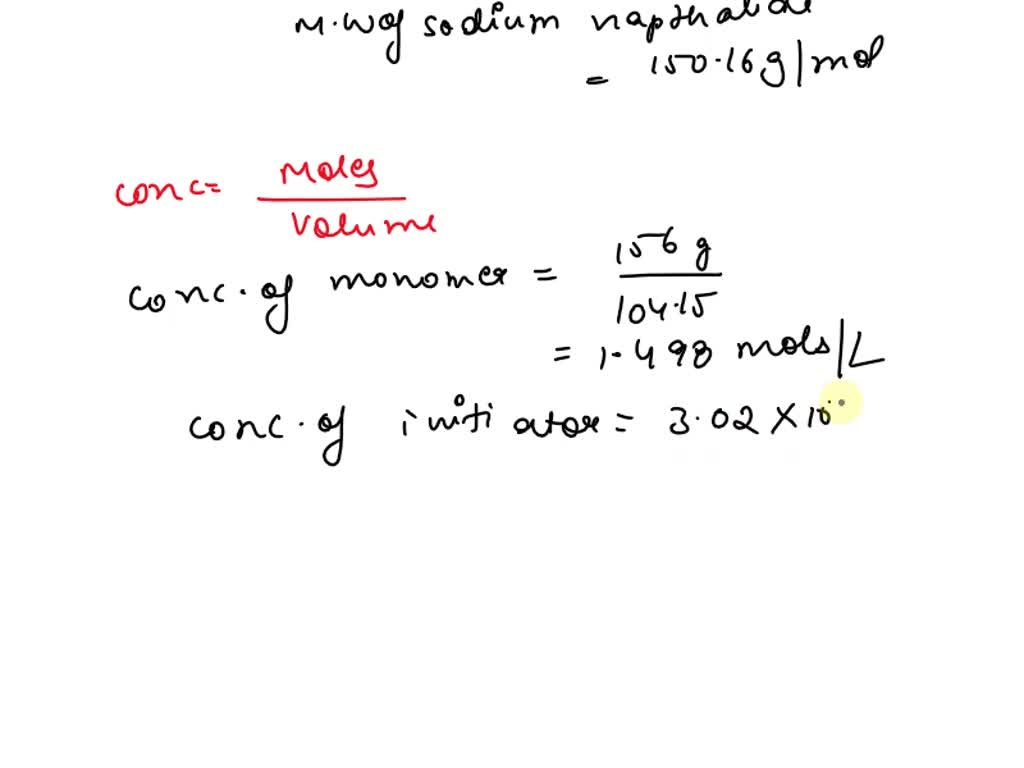 M.W of sodium napthalide
= 150.16 g/mol
conc = Moles
Volume
conc. of monomer = 156 g
104.15
= 1.498 mols/L
conc. of initiator = 3.02 × 10